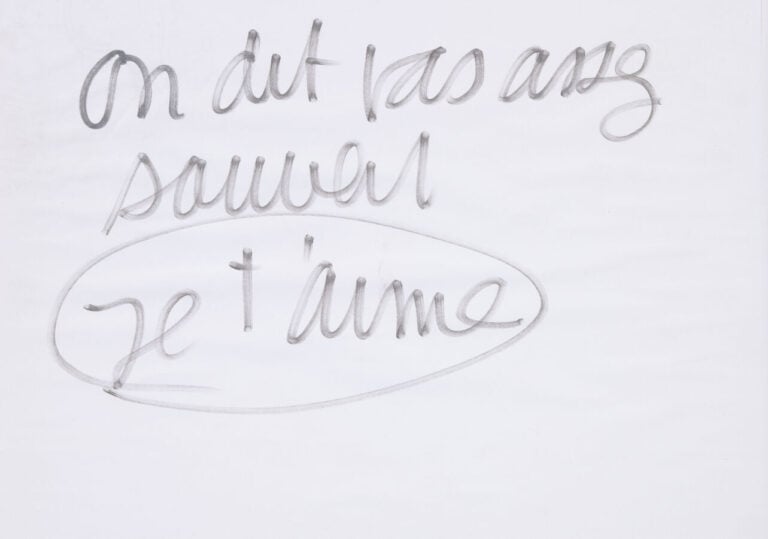 on dit pas assez
souvent
je t'aime